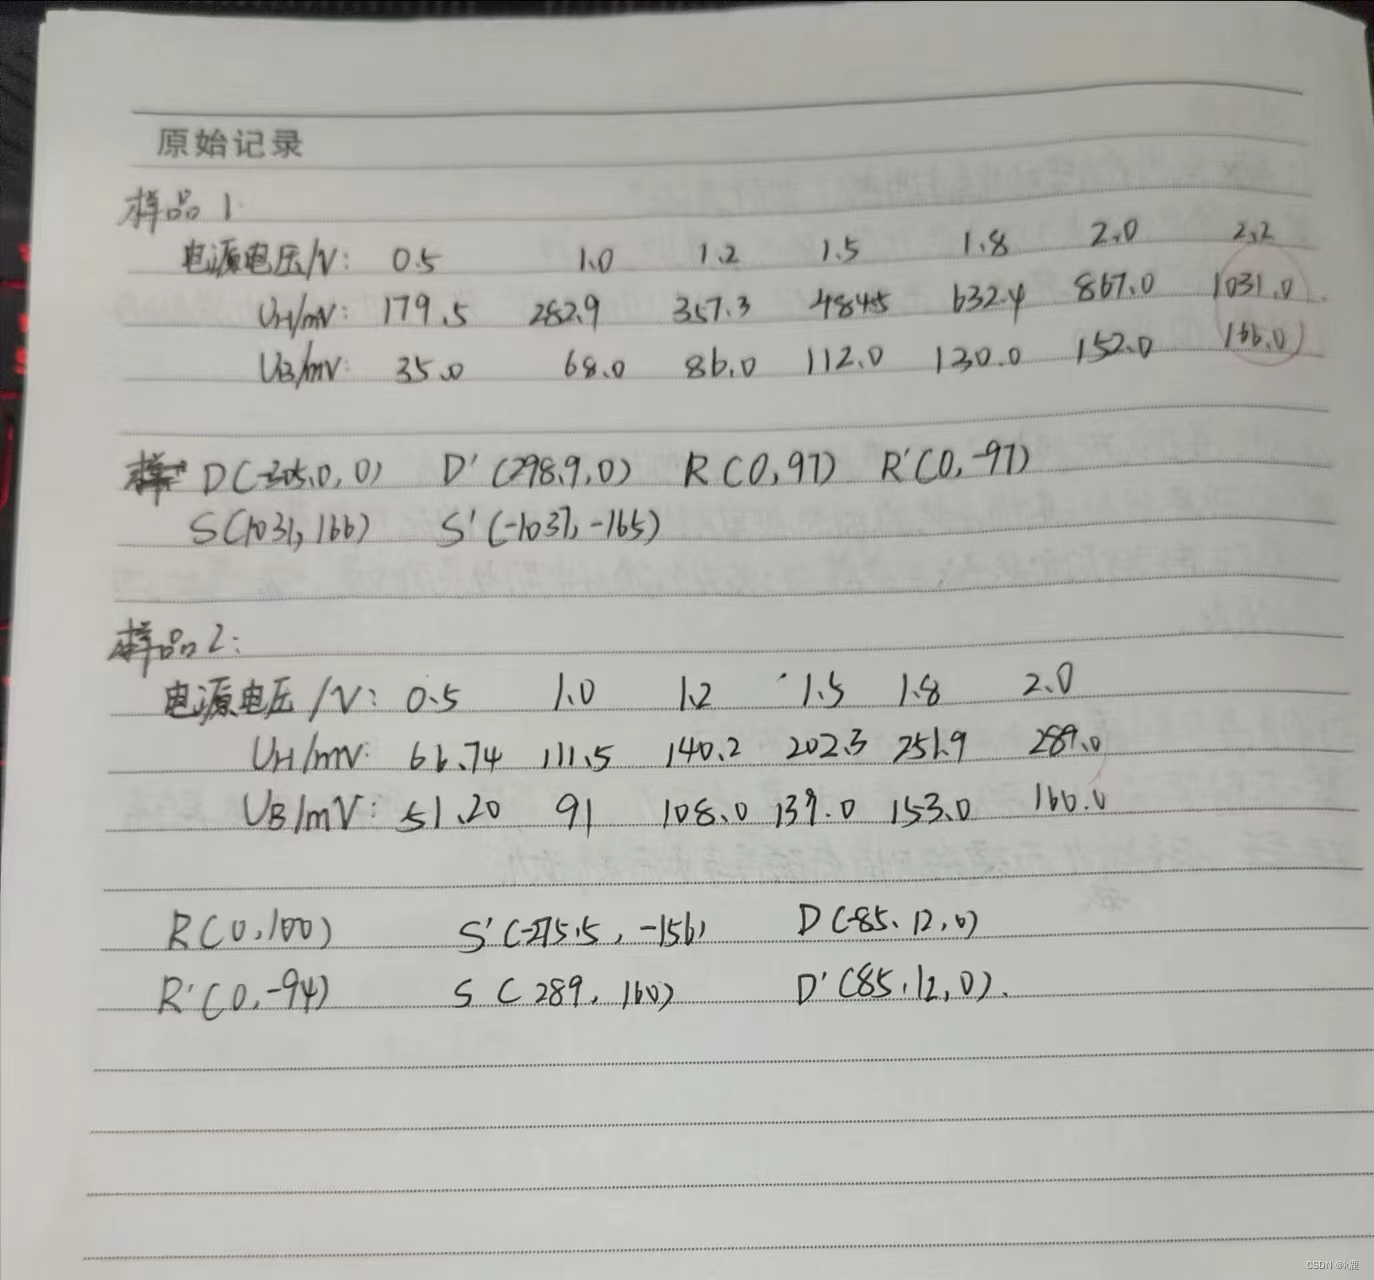 原始记录
样品1.
电源电压/V: 0.5 1.0 1.2 1.5 1.8 2.0 2.2
UH/mV: 179.5 282.9 357.3 484.5 632.4 867.0 1031.0
UB/mV: 35.0 68.0 86.0 112.0 130.0 152.0 166.0
D(-305.0, 0) D'(298.9, 0) R(0, 97) R'(0, -97)
S(1031, 166) S'(-1031, -165)
样品2:
电源电压/V: 0.5 1.0 1.2 1.5 1.8 2.0
UH/mV: 66.74 111.5 140.2 202.3 251.9 289.0
UB/mV: 51.20 91 108.0 139.0 153.0 160.0
R(0, 100) S'(-275.5, -156) D(-85.12, 0)
R'(0, -94) S(289, 160) D'(85.12, 0).
CSDN @k鹿